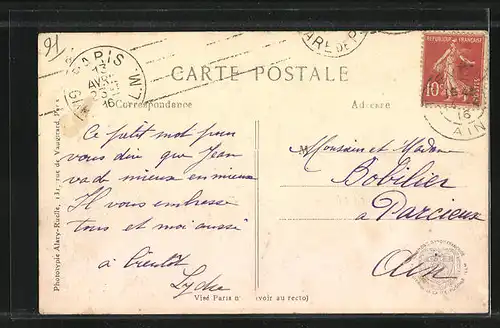 91
PARIS
13
AVRIL
16
GARE DE
RÉPUBLIQUE FRANÇAISE
10c
16
AIN
CARTE POSTALE
Correspondance
Adresse
Ce petit mot pour
vous dire que Jean
va de mieux en mieux
Il vous embrasse
tous et moi aussi
à bientôt
Lydie
Monsieur et Madame
Bobilier
à Parcieux
Ain
Phototypie Alary-Ruelle, rue de Vaugirard, Paris
Visé Paris n° (voir au recto)